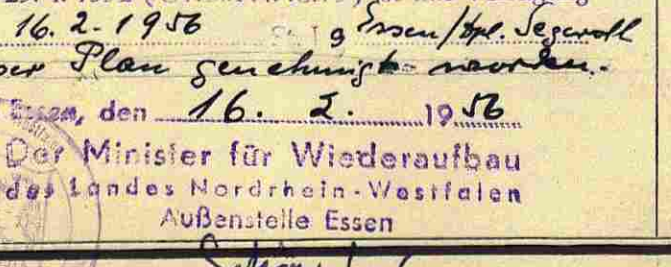 16. 2. 1956 g Essen/Spl. Segeroth
Plan genehmigt worden.
Essen, den 16. 2. 1956
Der Minister für Wiederaufbau
des Landes Nordrhein-Westfalen
Außenstelle Essen